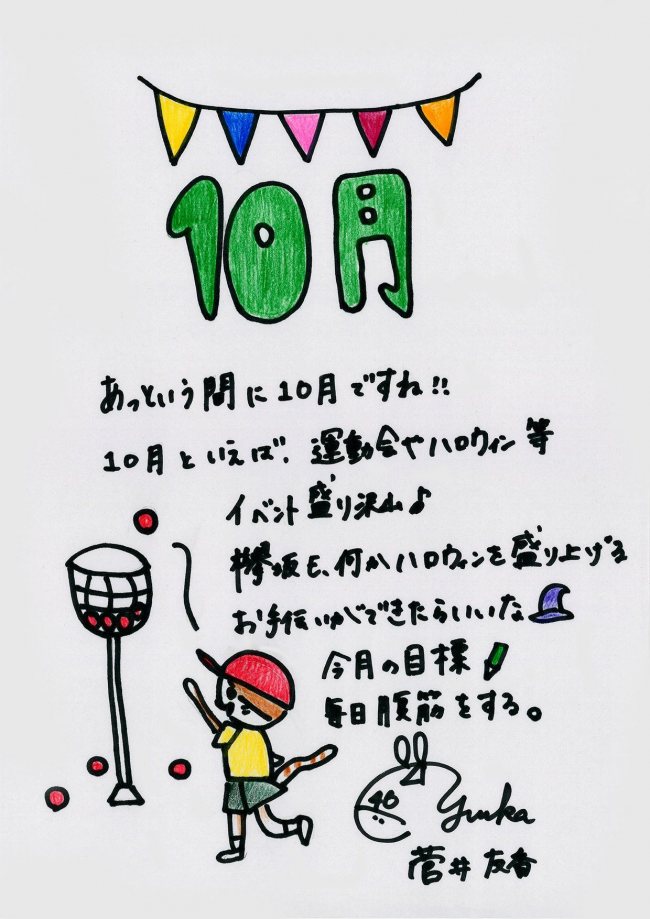 10月
あっという間に10月ですね!!
10月といえば、運動会やハロウィン等
イベント盛り沢山♪
欅坂も、何かハロウィンを盛り上げる
お手伝いができたらいいな
今月の目標
毎日腹筋をする。
46
Yuuka
菅井友香